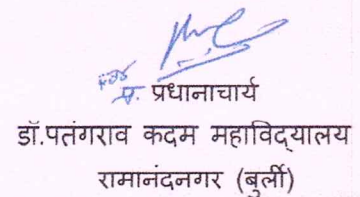 प्र. प्रधानाचार्य
डॉ.पतंगराव कदम महाविद्यालय
रामानंदनगर (बुर्ली)